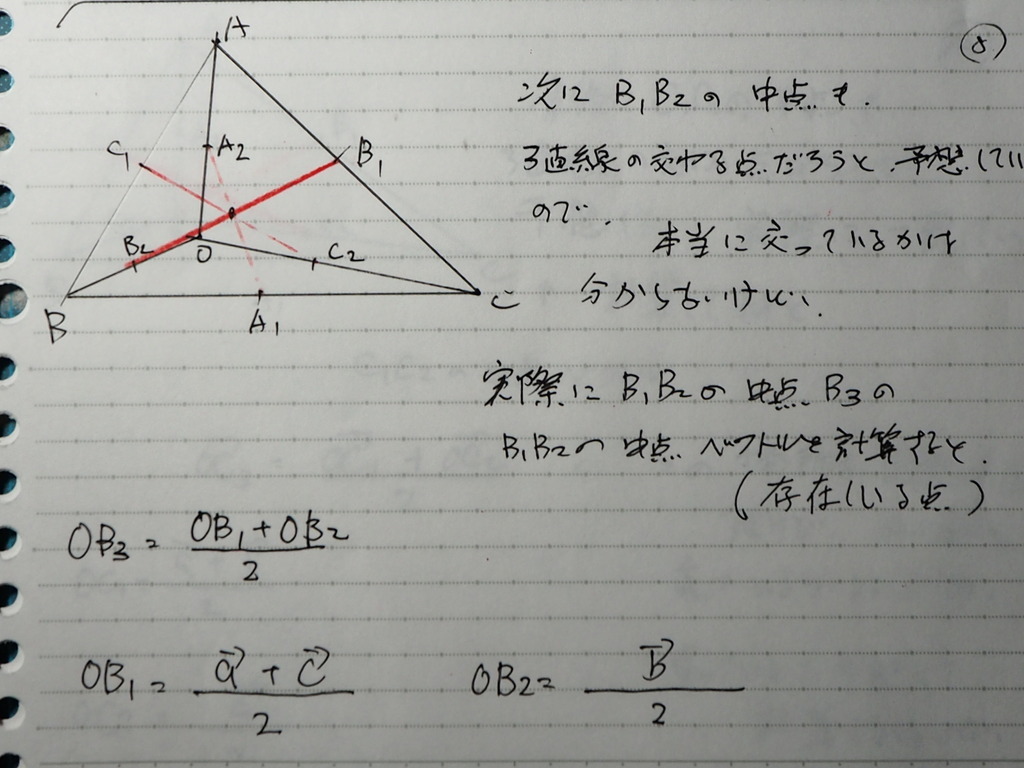 ⑧
A
C₁
A2
B₁
B2
O
C2
B
A₁
C
次に B₁B2の 中点も、
3直線の交わる点だろうと、予想してい
ので、
本当に交っているかは
分からないけど、
実際に B₁B2の 中点 B3の
B₁B2の 中点 ベクトルを計算すると、
(存在している点)
OB3 = (OB₁ + OB2)/2
OB₁ = (a⃗ + c⃗)/2 OB2 = B⃗/2